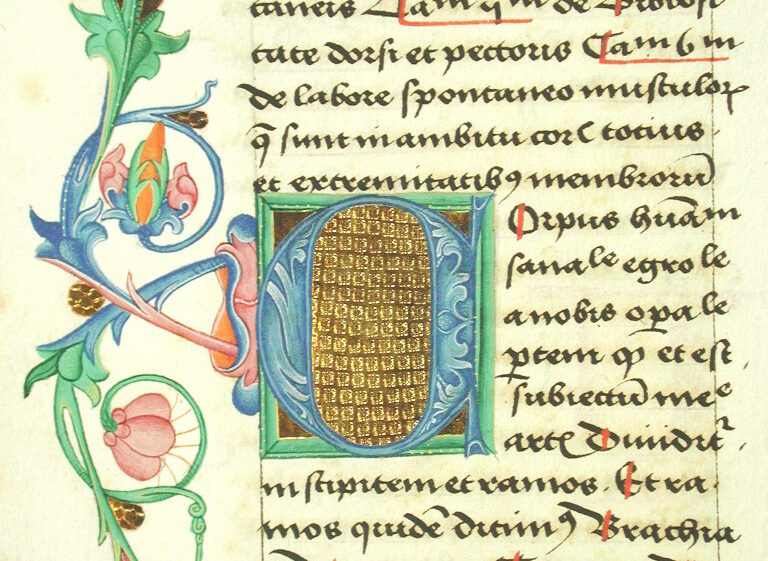 de
tate dorsi et pectoris Cam 6 m
de labore spontaneo musculoꝝ
q̄ sunt in ambitu corꝭ totius .
et extremitatibꝯ membrorū
Orpus huām
sana le egro le
a nobis oꝑa le
ꝑtem et est .
subiectū
Diuidit² .
in stipitem et ramos . Et ra
mos quidē dicimꝯ Brachia